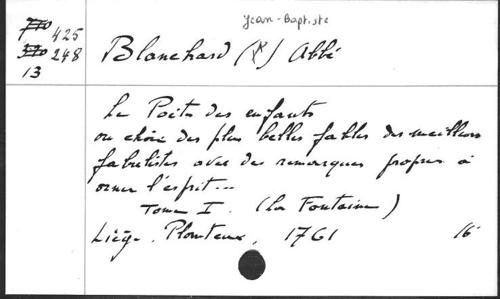 Jean-Baptiste
425
248
13
Blanchard (X) Abbé
Le Poète des enfants
ou choix des plus belles fables des meilleurs
fabulistes avec des remarques propres à
orner l'esprit...
Tome I. (La Fontaine)
Liége. Plomteux, 1761 16